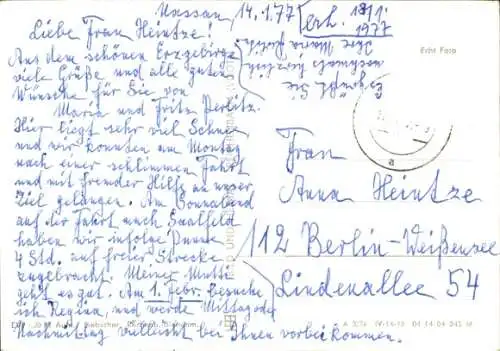 Nassau, 14.1.77
erh. 18/1. 1977
Liebe Frau Heintze!
Aus dem schönen Erzgebirge
viele Grüße und alle guten
Wünsche für Sie von
Maria und Fritz Perlitz.
Hier liegt sehr viel Schnee
und wir konnten am Montag
nach einer schlimmen Fahrt
und mit fremder Hilfe an unser
Ziel gelangen. Am Sonnabend
auf der Fahrt nach Saalfeld
haben wir infolge Panne
4 Std. auf freier Strecke
zugebracht. Meiner Mutti
geht es gut. Am 1. Febr. besuche
ich Regina, und werde Mittag oder
Nachmittag vielleicht bei Ihnen vorbei kommen.
Es grüßt Sie
nochmals herzlich
Ihre Maria Perlitz
Echt Foto
Frau
Anna Heintze
112 Berlin-Weißensee
Lindenallee 54